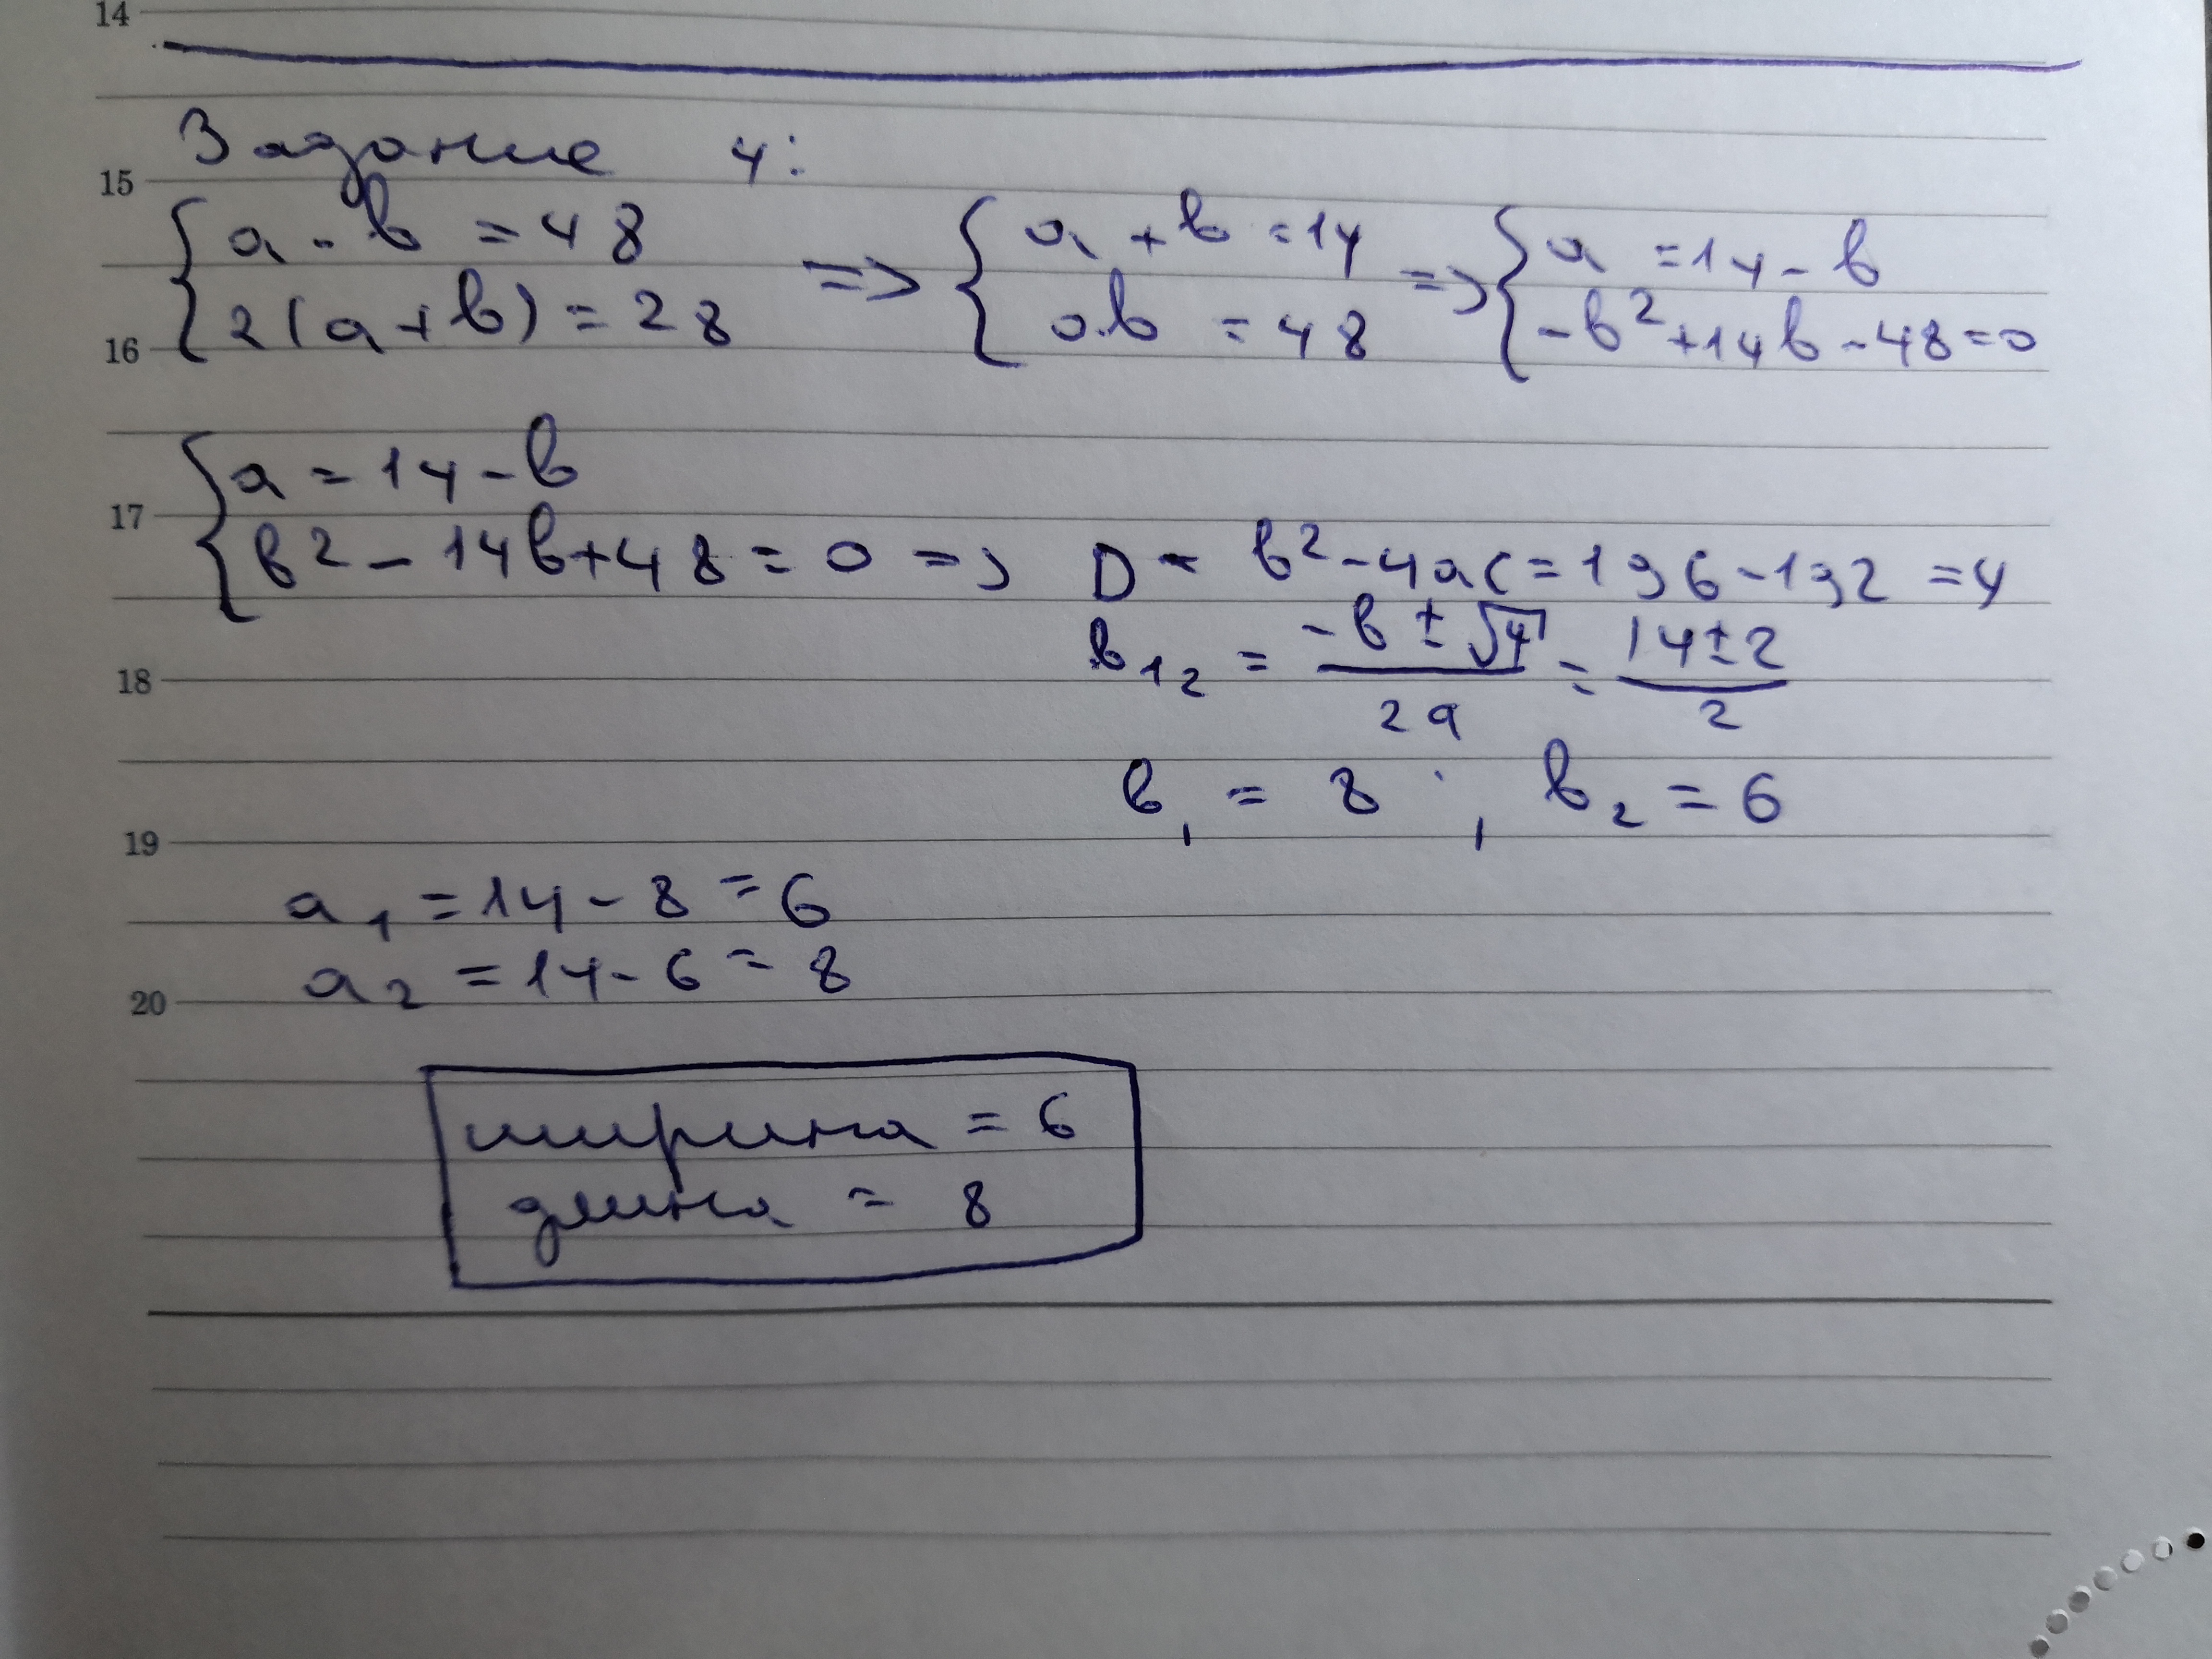 14
Задание 4:
15
{ a · b = 48
2(a+b) = 28 => { a + b = 14
a·b = 48 => { a = 14 - b
-b² + 14b - 48 = 0
16
{ a = 14 - b
17
b² - 14b + 48 = 0 => D = b² - 4ac = 196 - 192 = 4
b₁₂ = (-b ± √4)/2a = (14 ± 2)/2
18
b₁ = 8 , b₂ = 6
19
a₁ = 14 - 8 = 6
a₂ = 14 - 6 = 8
20
ширина = 6
длина = 8